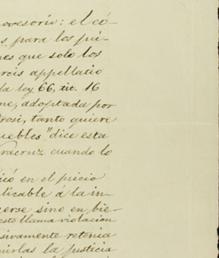 ovesorio: el có
s para los pú-
nes que solo los
rois appellatio
da ley 66, tit. 16
me, adoptada por
rosi, tanto quiere
uebles" dice esta
racruz cuando lo
icó en el juicio
licable á la in-
verse sino en bie-
esto llama violación
sivamente retenia
uirlas la justicia